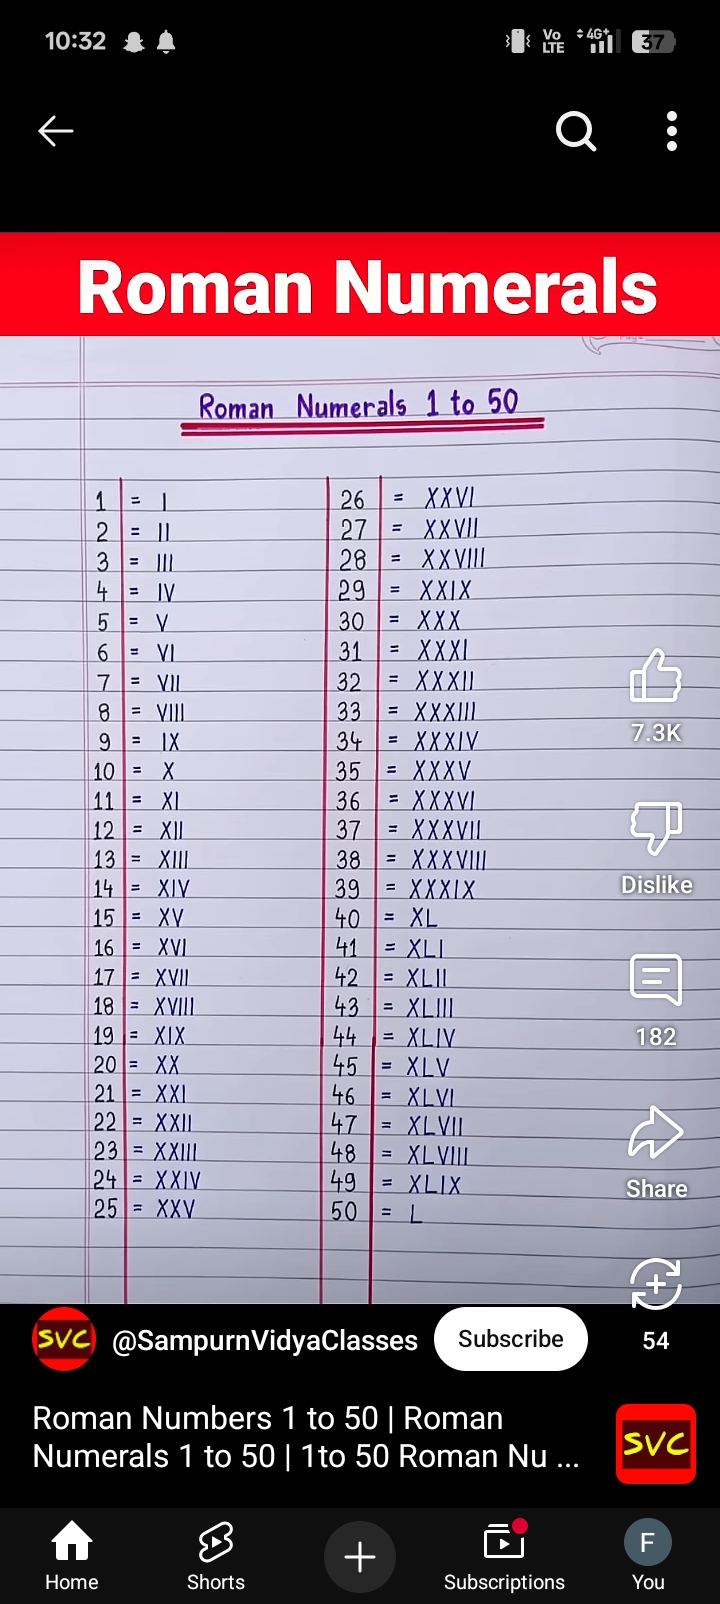 10:32 Vo LTE 4G+ 37
Roman Numerals
Roman Numerals 1 to 50
1 = I
2 = II
3 = III
4 = IV
5 = V
6 = VI
7 = VII
8 = VIII
9 = IX
10 = X
11 = XI
12 = XII
13 = XIII
14 = XIV
15 = XV
16 = XVI
17 = XVII
18 = XVIII
19 = XIX
20 = XX
21 = XXI
22 = XXII
23 = XXIII
24 = XXIV
25 = XXV
26 = XXVI
27 = XXVII
28 = XXVIII
29 = XXIX
30 = XXX
31 = XXXI
32 = XXXII
33 = XXXIII
34 = XXXIV
35 = XXXV
36 = XXXVI
37 = XXXVII
38 = XXXVIII
39 = XXXIX
40 = XL
41 = XLI
42 = XLII
43 = XLIII
44 = XLIV
45 = XLV
46 = XLVI
47 = XLVII
48 = XLVIII
49 = XLIX
50 = L
7.3K
Dislike
182
Share
54
SVC @SampurnVidyaClasses Subscribe
Roman Numbers 1 to 50 | Roman
Numerals 1 to 50 | 1to 50 Roman Nu ...
SVC
F
Home Shorts Subscriptions You